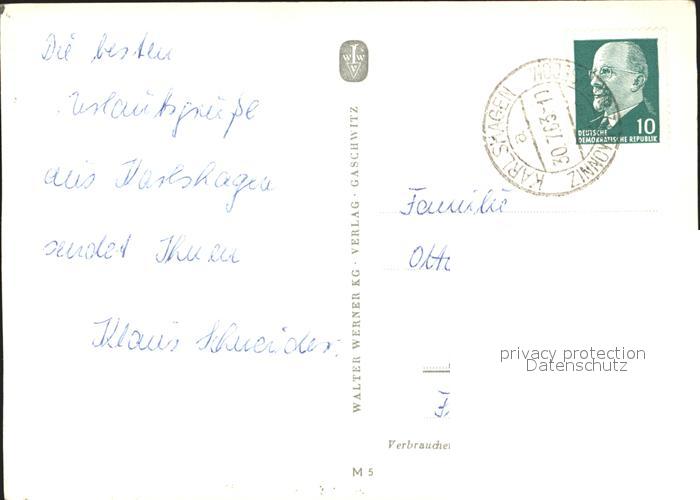 Die besten
Urlaubsgrüße
aus Karlshagen
sendet Ihnen
Klaus Schneider.
WALTER WERNER KG · VERLAG · GASCHWITZ
M 5
KARLSHAGEN
30.7.63-17
e
DEUTSCHE
DEMOKRATISCHE REPUBLIK
10
Familie
Otto
privacy protection
Datenschutz
F
Verbraucher